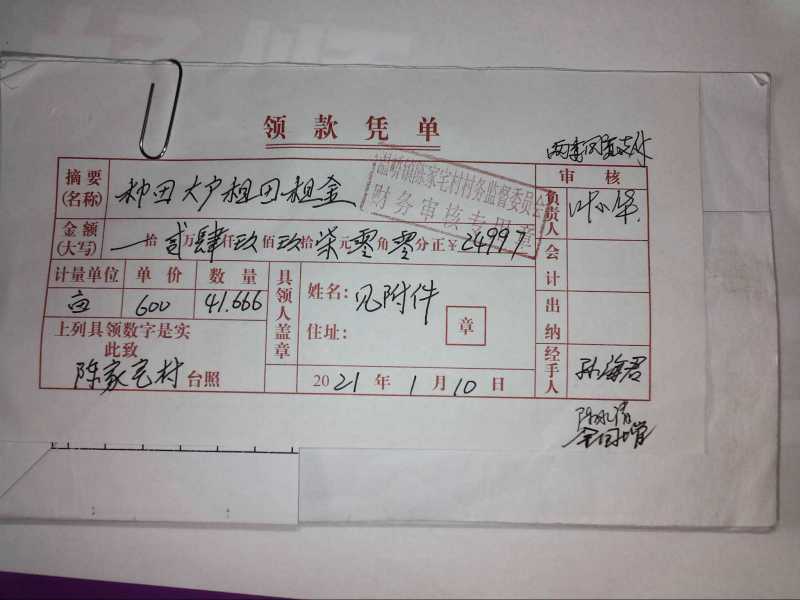 领款凭单
温峤镇陈家宅村村务监督委员会
财务审核专用章
摘要(名称) 种田大户租田租金
审核
负责人
金额(大写) 一拾贰万肆仟玖佰玖拾柒元零角零分正¥24997
会计
计量单位 单价 数量
亩 600 41.666
具领人盖章
姓名: 见附件
住址:
章
出纳
上列具领数字是实
此致
陈家宅村 台照
2021年1月10日
经手人 孙海君